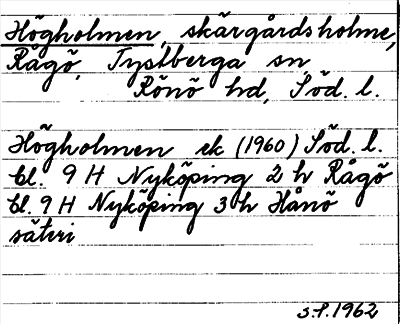 Högholmen, skärgårdsholme,
Rågö, Tystberga sn,
Rönö hd, Söd. l.
Högholmen ek (1960) Söd. l.
bl. 9 H Nyköping 2 h Rågö
bl. 9 H Nyköping 3 h Hånö
säteri
s.f. 1962